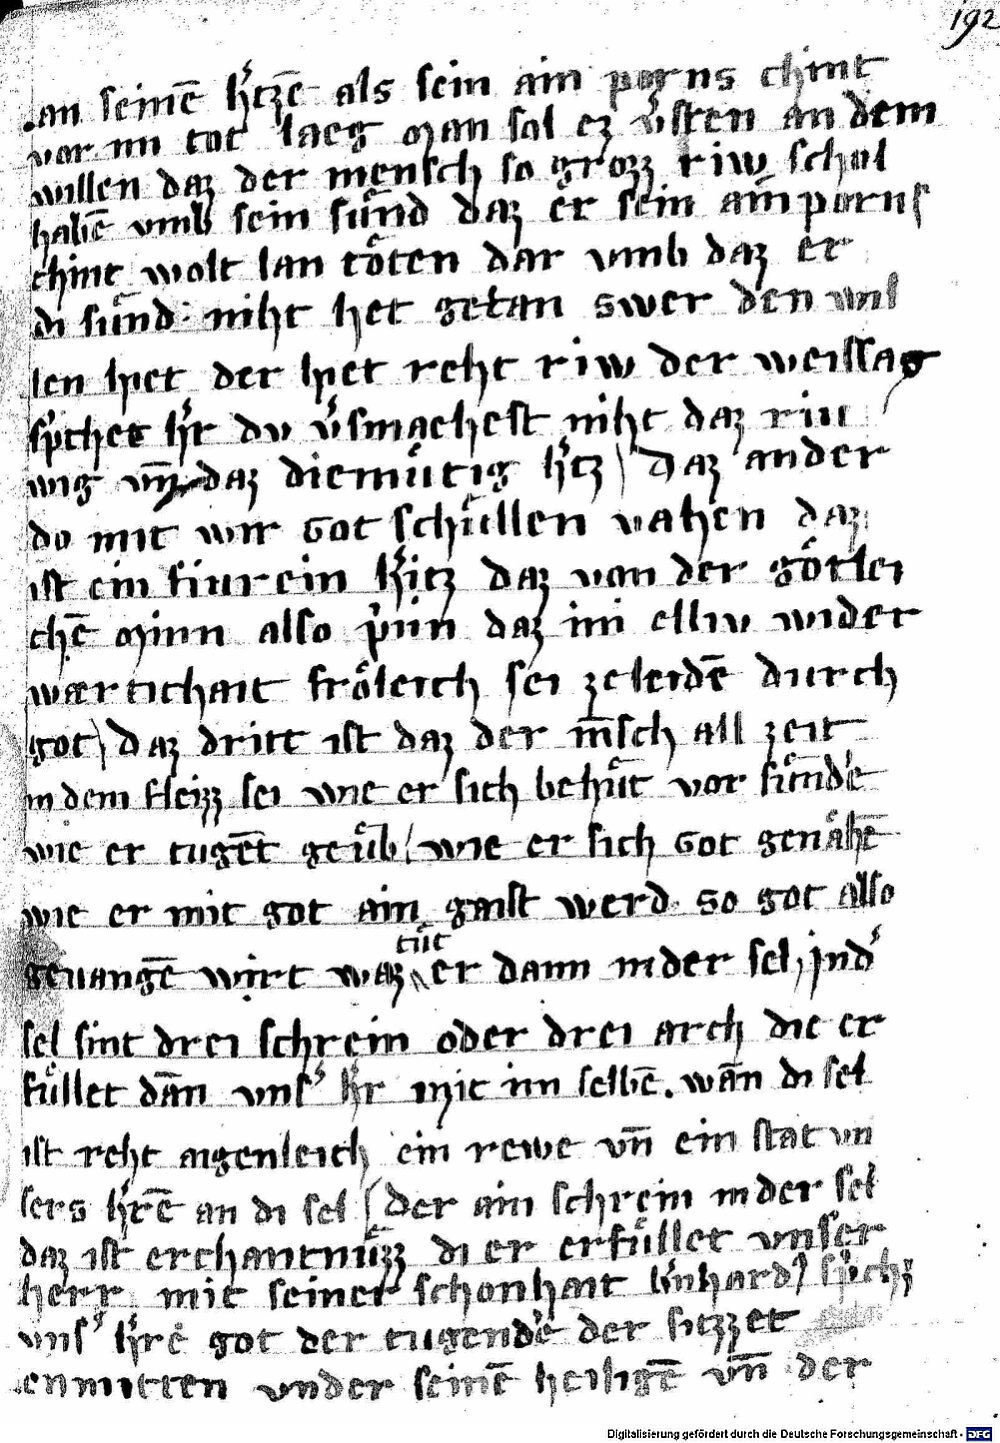 192
an seinē h'tzē als sein ain porns chint
vor im tot laeg man sol ez v'sten an dem
willen daz der mensch so grozz riw schol
habē vmb sein suͤnd daz er sein ainporns
chint wolt lan toͤten dar vmb daz er
di suͤnd niht het getan swer den wil
len het der het reht riw der weissag
sp'chet h'r du v'smaehest niht daz riu
wig vn̄ daz diemuͤtig h'tz daz ander
do mit wir got schuͤllen vahen daz
ist ein fiurein h'tz daz von der goͤtlei
chē minn also p'nn daz im elliv wider
waertichait froͤleich sei ze leidē durch
got daz dritt ist daz der m̄sch all zeit
in dem fleizz sei wie er sich behuͤt vor suͤnd'e
wie er tugēt geuͤb wie er sich got genaͤhē
wie er mit got ain gaist werd. so got also
geuangē wirt waz tuͤt er dann in der sel, in d'
sel sint drei schrein oder drei arch die er
fuͤllet dān vns' h'r mit im selbē. wān di sel
ist reht aigenleich ein rewe vn̄ ein stat vn
sers h'rē an di sel der ain schrein in der sel
daz ist erchantnuͤzz di er erfuͤllet vnser
herr mit seiner schonhait b'nhard' sp'ch
vns' h're got der tugend'e der sitzzet
enmitten vnder seinē heiligē vn̄ der
Digitalisierung gefördert durch die Deutsche Forschungsgemeinschaft - DFG